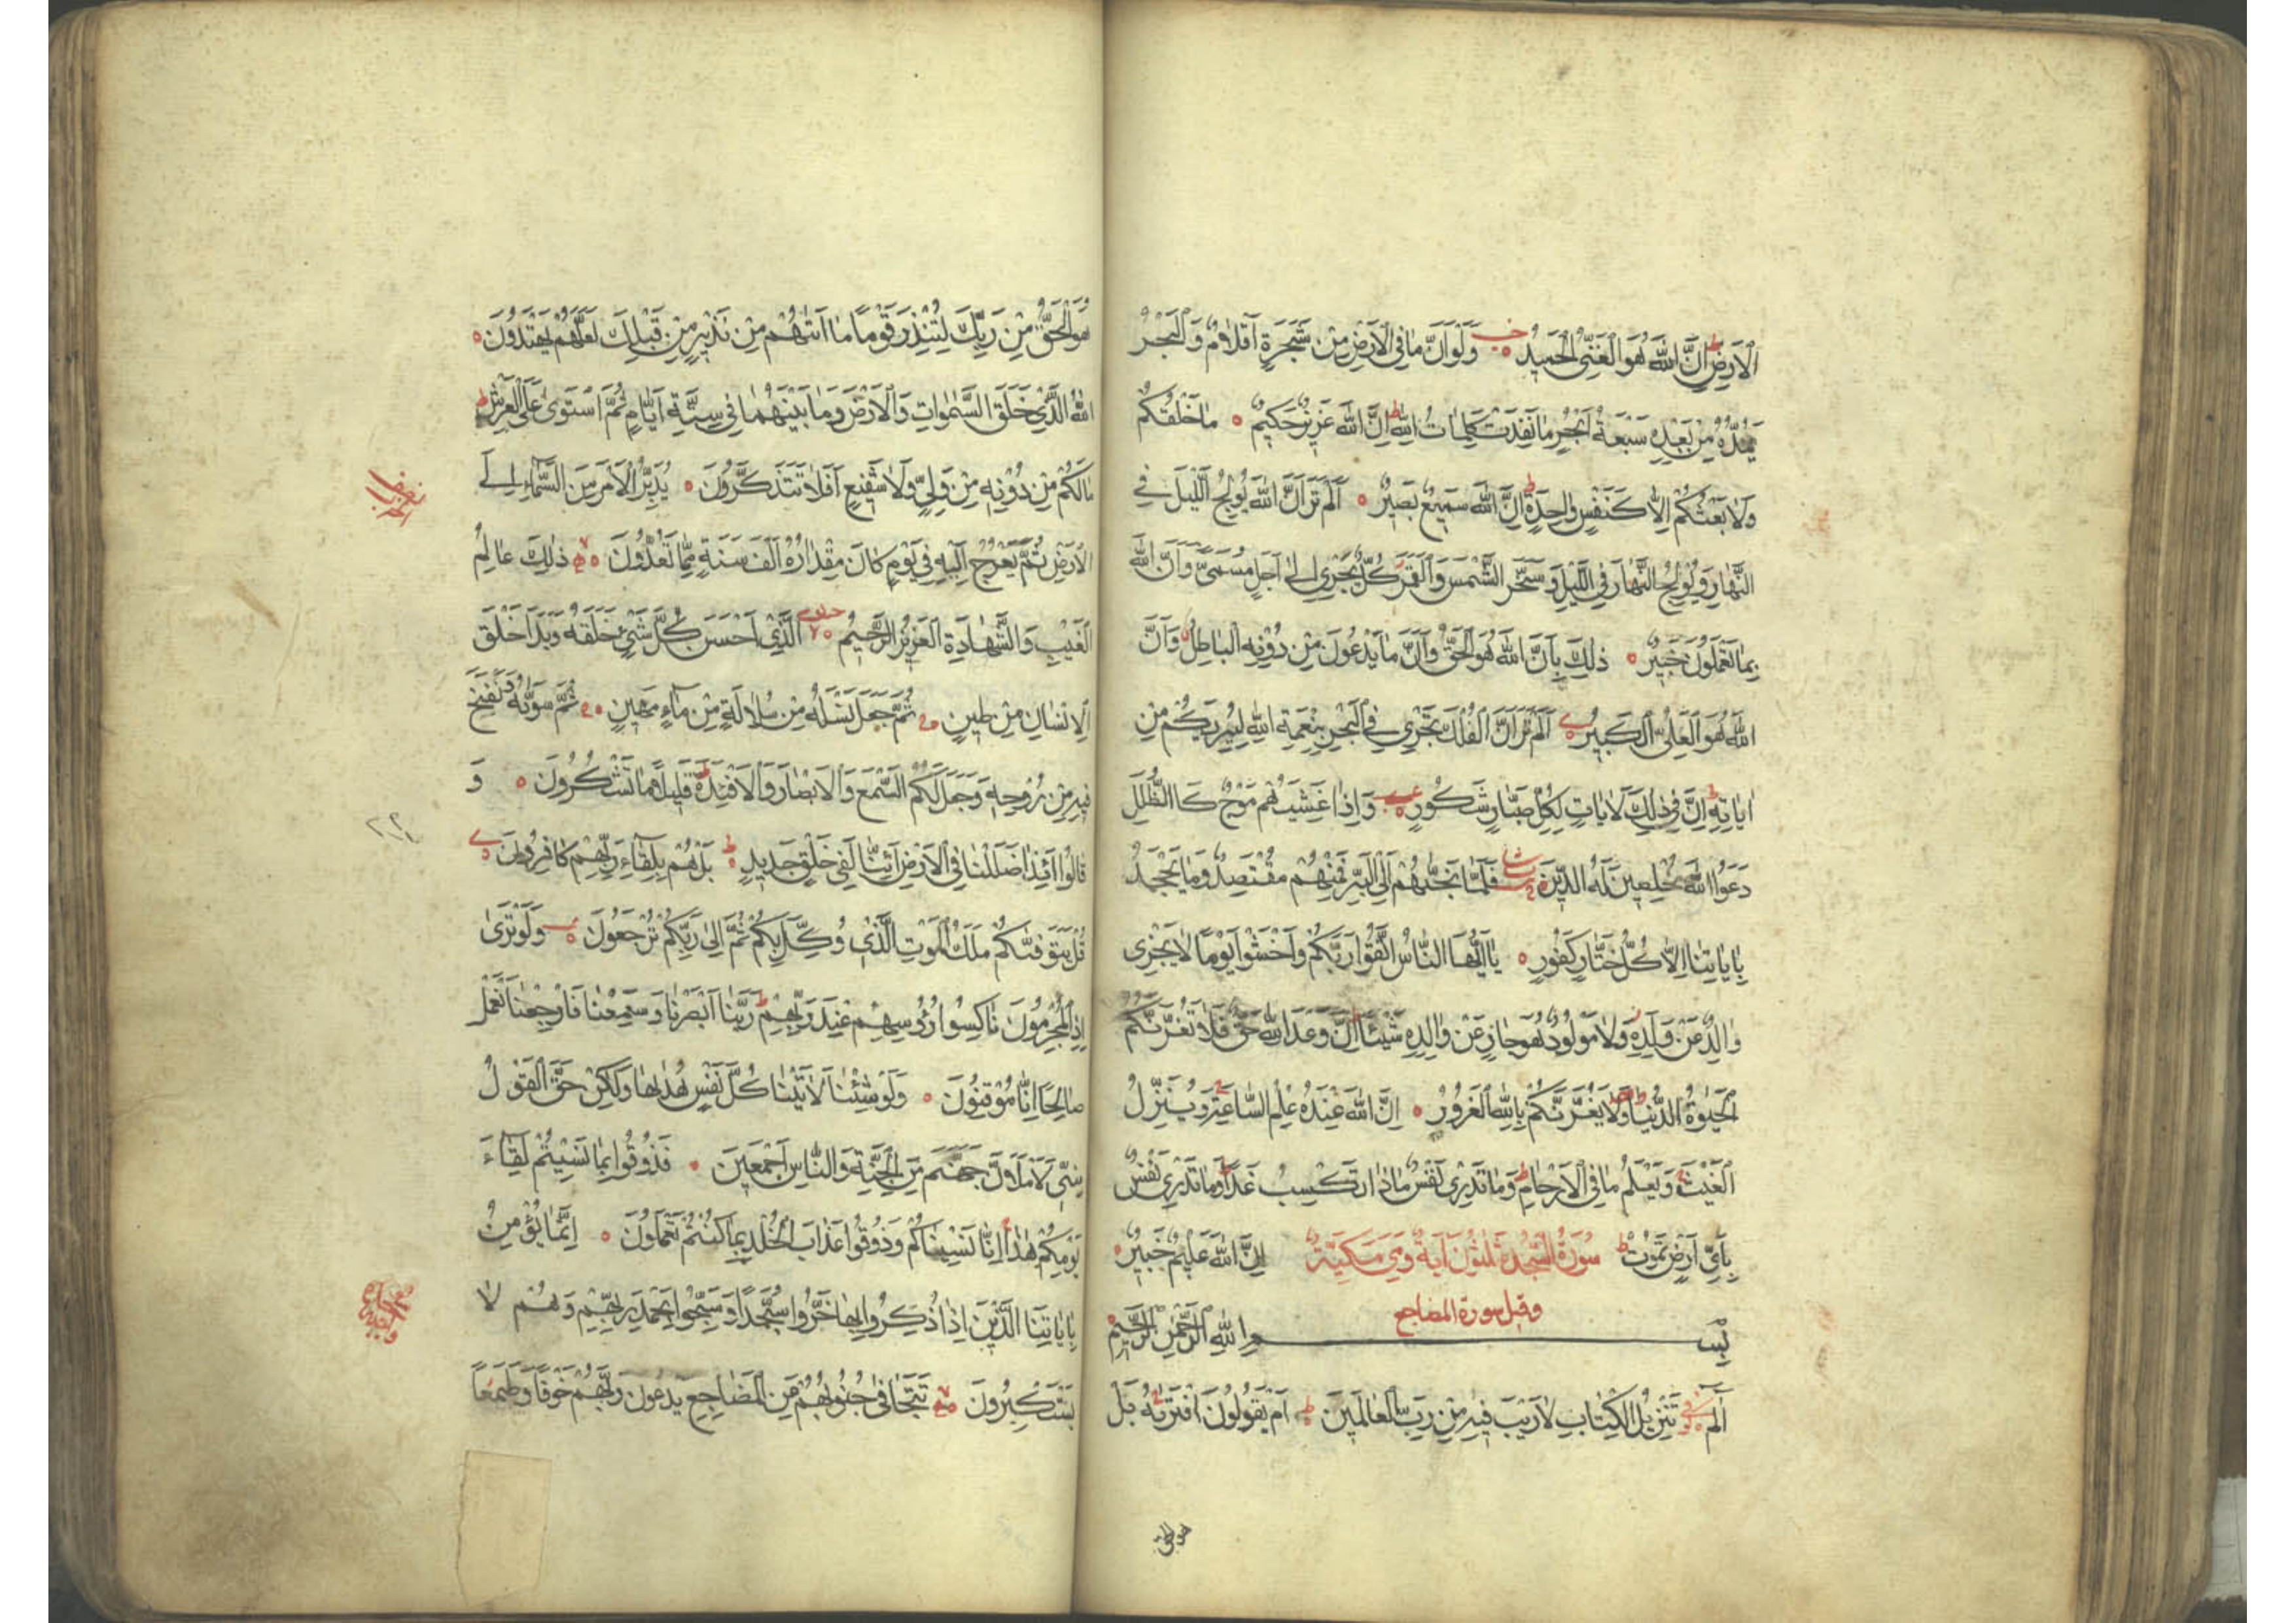 الْاَرْضِ ط اِنَّ اللّٰهَ هُوَ الْغَنِىُّ الْحَمِيدُ وَلَوْ اَنَّ مَا فِى الْاَرْضِ مِنْ شَجَرَةٍ اَقْلَامٌ وَالْبَحْرُ
يَمُدُّهُ مِنْ بَعْدِهِ سَبْعَةُ اَبْحُرٍ مَا نَفِدَتْ كَلِمَاتُ اللّٰهِ ط اِنَّ اللّٰهَ عَزِيزٌ حَكِيمٌ ۝ مَا خَلْقُكُمْ
وَلَا بَعْثُكُمْ اِلَّا كَنَفْسٍ وَاحِدَةٍ ط اِنَّ اللّٰهَ سَمِيعٌ بَصِيرٌ ۝ اَلَمْ تَرَ اَنَّ اللّٰهَ يُولِجُ الَّيْلَ فِى
النَّهَارِ وَيُولِجُ النَّهَارَ فِى اللَّيْلِ وَسَخَّرَ الشَّمْسَ وَالْقَمَرَ كُلٌّ يَجْرِى اِلٰى اَجَلٍ مُسَمًّى وَاَنَّ اللّٰهَ
بِمَا تَعْمَلُونَ خَبِيرٌ ۝ ذٰلِكَ بِاَنَّ اللّٰهَ هُوَ الْحَقُّ وَاَنَّ مَا يَدْعُونَ مِنْ دُونِهِ الْبَاطِلُ وَاَنَّ
اللّٰهَ هُوَ الْعَلِىُّ الْكَبِيرُ اَلَمْ تَرَ اَنَّ الْفُلْكَ تَجْرِى فِى الْبَحْرِ بِنِعْمَةِ اللّٰهِ لِيُرِيَكُمْ مِنْ
اٰيَاتِهِ ط اِنَّ فِى ذٰلِكَ لَاٰيَاتٍ لِكُلِّ صَبَّارٍ شَكُورٍ وَاِذَا غَشِيَهُمْ مَوْجٌ كَاالظُّلَلِ
دَعَوُا اللّٰهَ مُخْلِصِينَ لَهُ الدِّينَ فَلَمَّا نَجّٰىهُمْ اِلَى الْبَرِّ فَمِنْهُمْ مُقْتَصِدٌ وَمَا يَجْحَدُ
بِاٰيَاتِنَا اِلَّا كُلُّ خَتَّارٍ كَفُورٍ ۝ يَا اَيُّهَا النَّاسُ اتَّقُوا رَبَّكُمْ وَاخْشَوْا يَوْمًا لَا يَجْزِى
وَالِدٌ عَنْ وَلَدِهِ وَلَا مَوْلُودٌ هُوَ جَازٍ عَنْ وَالِدِهِ شَيْئًا اِنَّ وَعْدَ اللّٰهِ حَقٌّ فَلَا تَغُرَّنَّكُمُ
الْحَيٰوةُ الدُّنْيَا وَلَا يَغُرَّنَّكُمْ بِاللّٰهِ الْغَرُورُ ۝ اِنَّ اللّٰهَ عِنْدَهُ عِلْمُ السَّاعَةِ وَيُنَزِّلُ
الْغَيْثَ وَيَعْلَمُ مَا فِى الْاَرْحَامِ ط وَمَا تَدْرِى نَفْسٌ مَاذَا تَكْسِبُ غَدًا وَمَا تَدْرِى نَفْسٌ
بِاَىِّ اَرْضٍ تَمُوتُ ط سُورَةُ السَّجْدَةِ ثَلٰثُونَ اٰيَةً وَهِىَ مَكِّيَّةٌ اِنَّ اللّٰهَ عَلِيمٌ خَبِيرٌ ۝
وقيل سورة المضاجع
بِسْمِ اللّٰهِ الرَّحْمٰنِ الرَّحِيمِ
الٓمٓ تَنْزِيلُ الْكِتَابِ لَا رَيْبَ فِيهِ مِنْ رَبِّ الْعَالَمِينَ ط اَمْ يَقُولُونَ افْتَرٰيهُ بَلْ
هو الحق
هُوَ الْحَقُّ مِنْ رَبِّكَ لِتُنْذِرَ قَوْمًا مَا اَتٰىهُمْ مِنْ نَذِيرٍ مِنْ قَبْلِكَ لَعَلَّهُمْ يَهْتَدُونَ ۝
اَللّٰهُ الَّذِى خَلَقَ السَّمٰوَاتِ وَالْاَرْضَ وَمَا بَيْنَهُمَا فِى سِتَّةِ اَيَّامٍ ثُمَّ اسْتَوٰى عَلَى الْعَرْشِ ط
مَا لَكُمْ مِنْ دُونِهِ مِنْ وَلِىٍّ وَلَا شَفِيعٍ اَفَلَا تَتَذَكَّرُونَ ۝ يُدَبِّرُ الْاَمْرَ مِنَ السَّمَاءِ اِلَى
الْاَرْضِ ثُمَّ يَعْرُجُ اِلَيْهِ فِى يَوْمٍ كَانَ مِقْدَارُهُ اَلْفَ سَنَةٍ مِمَّا تَعُدُّونَ ۝ ذٰلِكَ عَالِمُ
الْغَيْبِ وَالشَّهَادَةِ الْعَزِيزُ الرَّحِيمُ ۝ الَّذِى اَحْسَنَ كُلَّ شَىْءٍ خَلَقَهُ وَبَدَاَ خَلْقَ
الْاِنْسَانِ مِنْ طِينٍ ۝ ثُمَّ جَعَلَ نَسْلَهُ مِنْ سُلَالَةٍ مِنْ مَاءٍ مَهِينٍ ۝ ثُمَّ سَوّٰيهُ وَنَفَخَ
فِيهِ مِنْ رُوحِهِ وَجَعَلَ لَكُمُ السَّمْعَ وَالْاَبْصَارَ وَالْاَفْئِدَةَ ط قَلِيلًا مَا تَشْكُرُونَ ۝ وَ
قَالُوا اَئِذَا ضَلَلْنَا فِى الْاَرْضِ اَئِنَّا لَفِى خَلْقٍ جَدِيدٍ ط بَلْ هُمْ بِلِقَاءِ رَبِّهِمْ كَافِرُونَ
قُلْ يَتَوَفّٰىكُمْ مَلَكُ الْمَوْتِ الَّذِى وُكِّلَ بِكُمْ ثُمَّ اِلٰى رَبِّكُمْ تُرْجَعُونَ ۝ وَلَوْ تَرٰى
اِذِ الْمُجْرِمُونَ نَاكِسُوا رُؤُسِهِمْ عِنْدَ رَبِّهِمْ ط رَبَّنَا اَبْصَرْنَا وَسَمِعْنَا فَارْجِعْنَا نَعْمَلْ
صَالِحًا اِنَّا مُوقِنُونَ ۝ وَلَوْ شِئْنَا لَاٰتَيْنَا كُلَّ نَفْسٍ هُدٰيهَا وَلٰكِنْ حَقَّ الْقَوْلُ
مِنِّى لَاَمْلَاَنَّ جَهَنَّمَ مِنَ الْجِنَّةِ وَالنَّاسِ اَجْمَعِينَ ۝ فَذُوقُوا بِمَا نَسِيتُمْ لِقَاءَ
يَوْمِكُمْ هٰذَا اِنَّا نَسِينَاكُمْ وَذُوقُوا عَذَابَ الْخُلْدِ بِمَا كُنْتُمْ تَعْمَلُونَ ۝ اِنَّمَا يُؤْمِنُ
بِاٰيَاتِنَا الَّذِينَ اِذَا ذُكِّرُوا بِهَا خَرُّوا سُجَّدًا وَسَبَّحُوا بِحَمْدِ رَبِّهِمْ وَهُمْ لَا
يَسْتَكْبِرُونَ ۝ تَتَجَافٰى جُنُوبُهُمْ عَنِ الْمَضَاجِعِ يَدْعُونَ رَبَّهُمْ خَوْفًا وَطَمَعًا